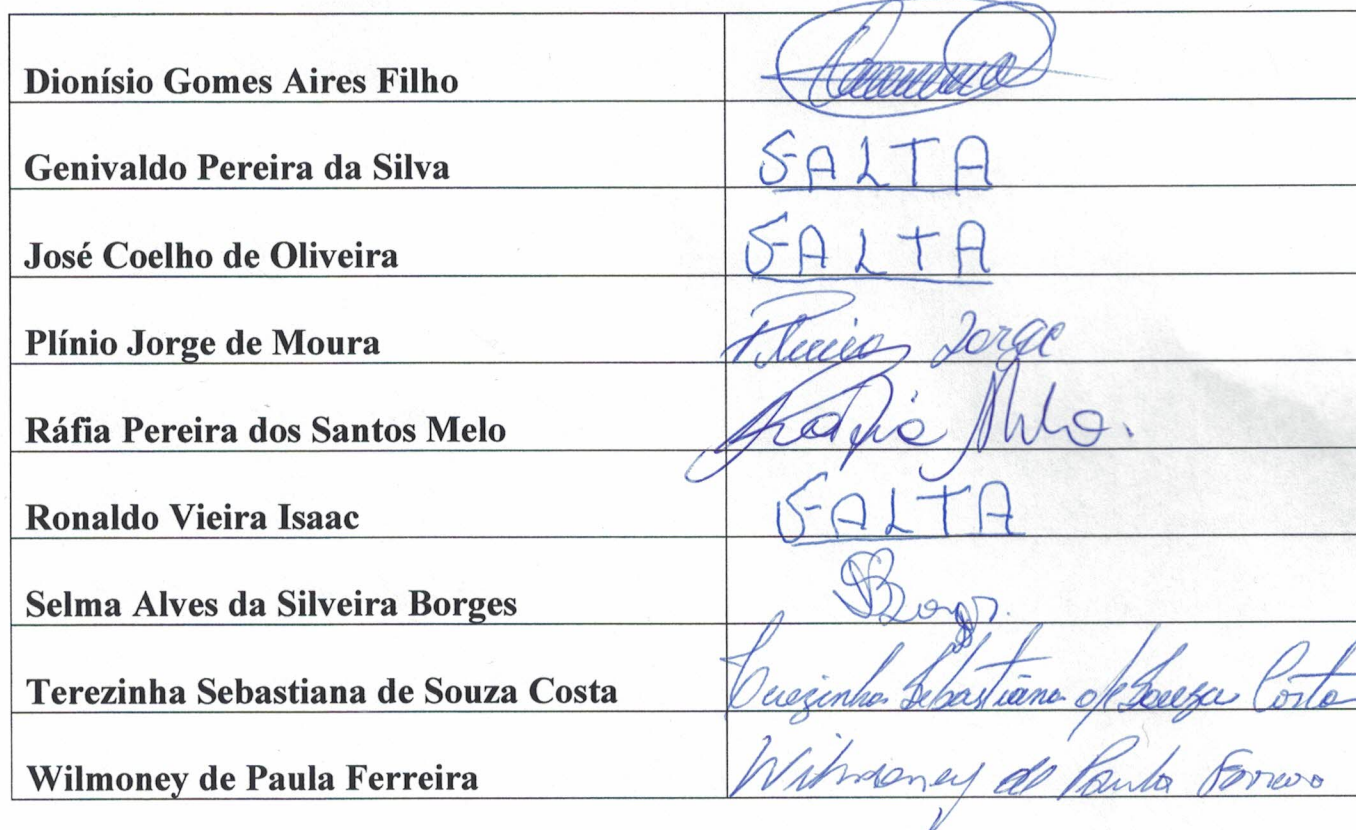 Dionísio Gomes Aires Filho
Genivaldo Pereira da Silva FALTA
José Coelho de Oliveira FALTA
Plínio Jorge de Moura Plinio Jorge
Ráfia Pereira dos Santos Melo Ráfia Melo.
Ronaldo Vieira Isaac FALTA
Selma Alves da Silveira Borges
Terezinha Sebastiana de Souza Costa Terezinha Sebastiana de Souza Costa
Wilmoney de Paula Ferreira Wilmoney de Paula Ferreira